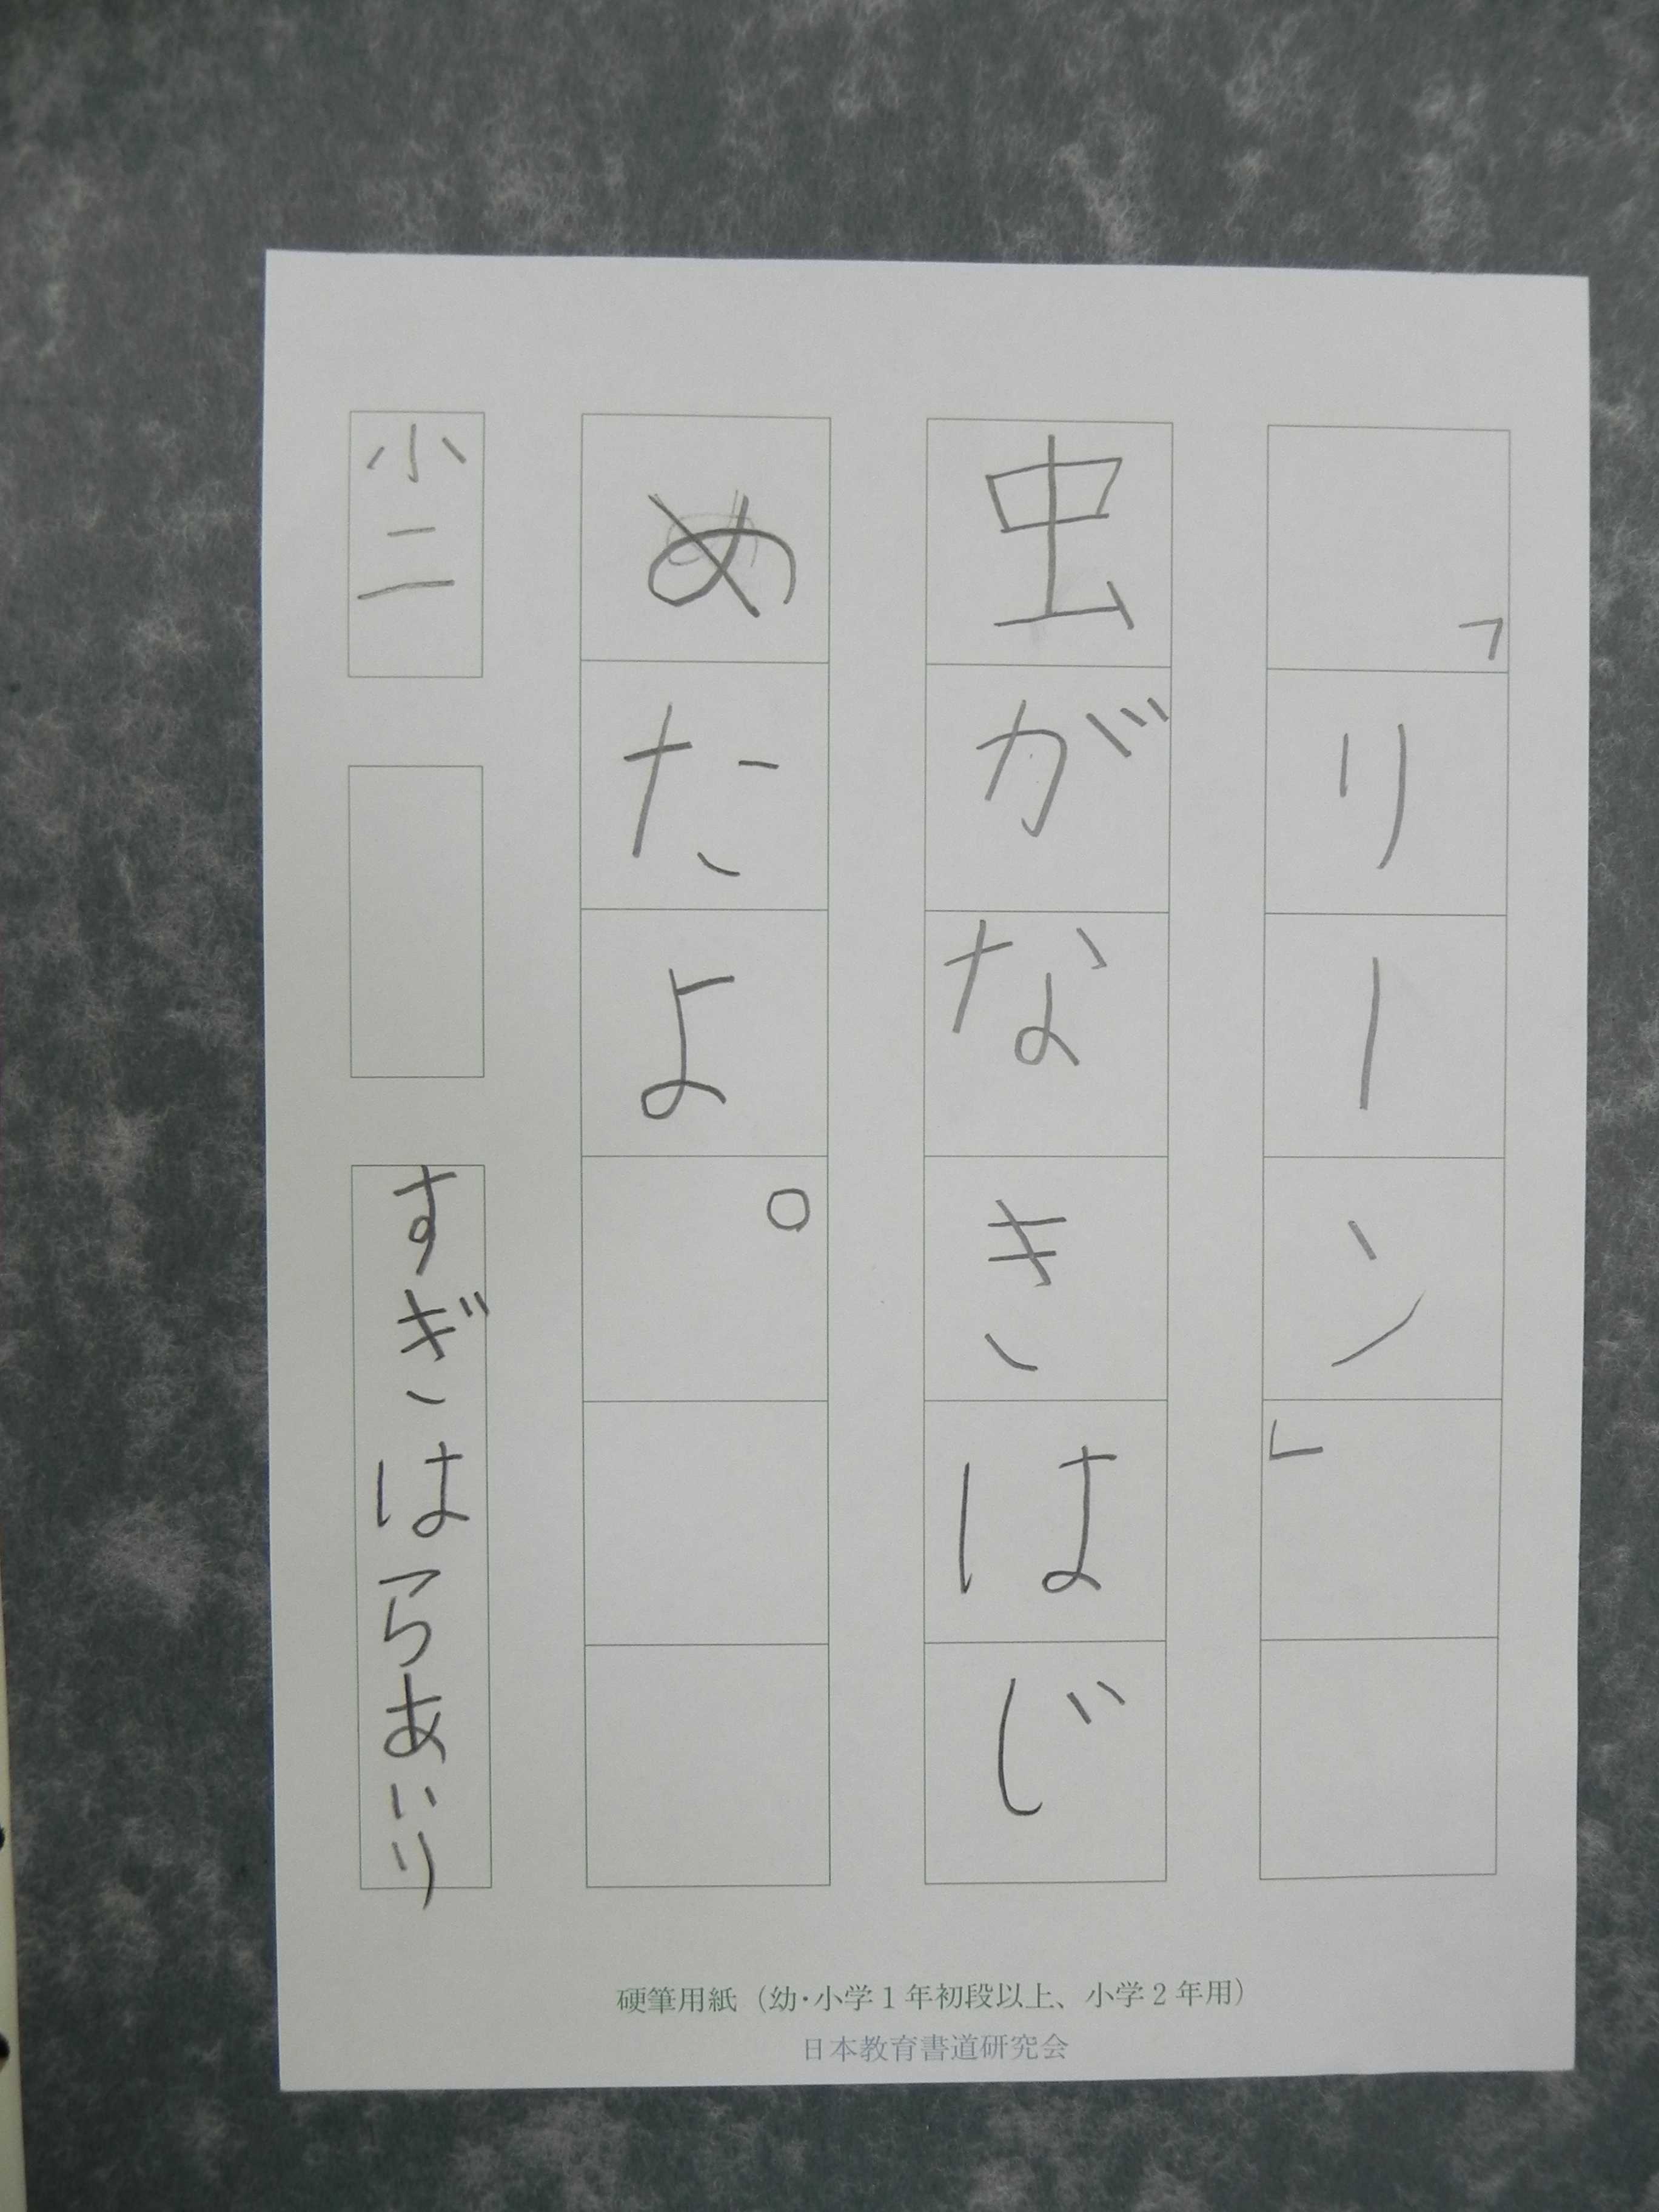 「リーン」
虫がなきはじ
めたよ。
小二
すぎはらあいり
硬筆用紙（幼・小学１年初段以上、小学２年用）
日本教育書道研究会